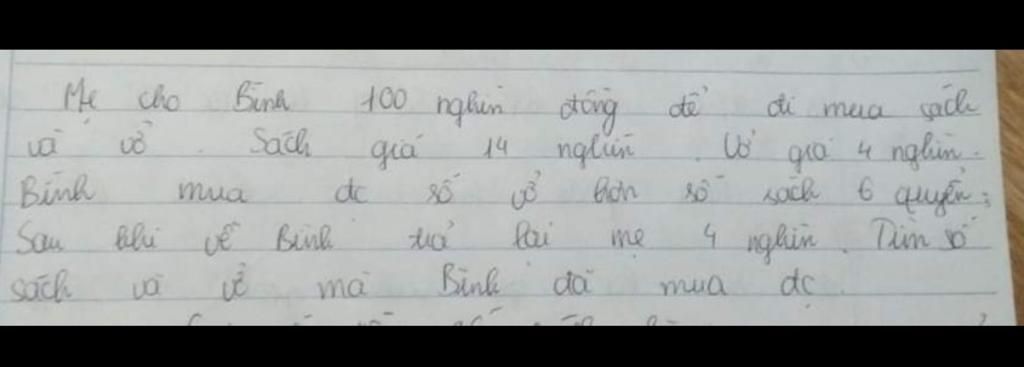 Mẹ cho Bình 100 nghìn đồng để đi mua sách
và vở. Sách giá 14 nghìn. Vở giá 4 nghìn.
Bình mua dc số vở hơn số sách 6 quyển;
Sau khi về Bình trả lại mẹ 4 nghìn. Tìm số
sách và vở mà Bình đã mua dc.